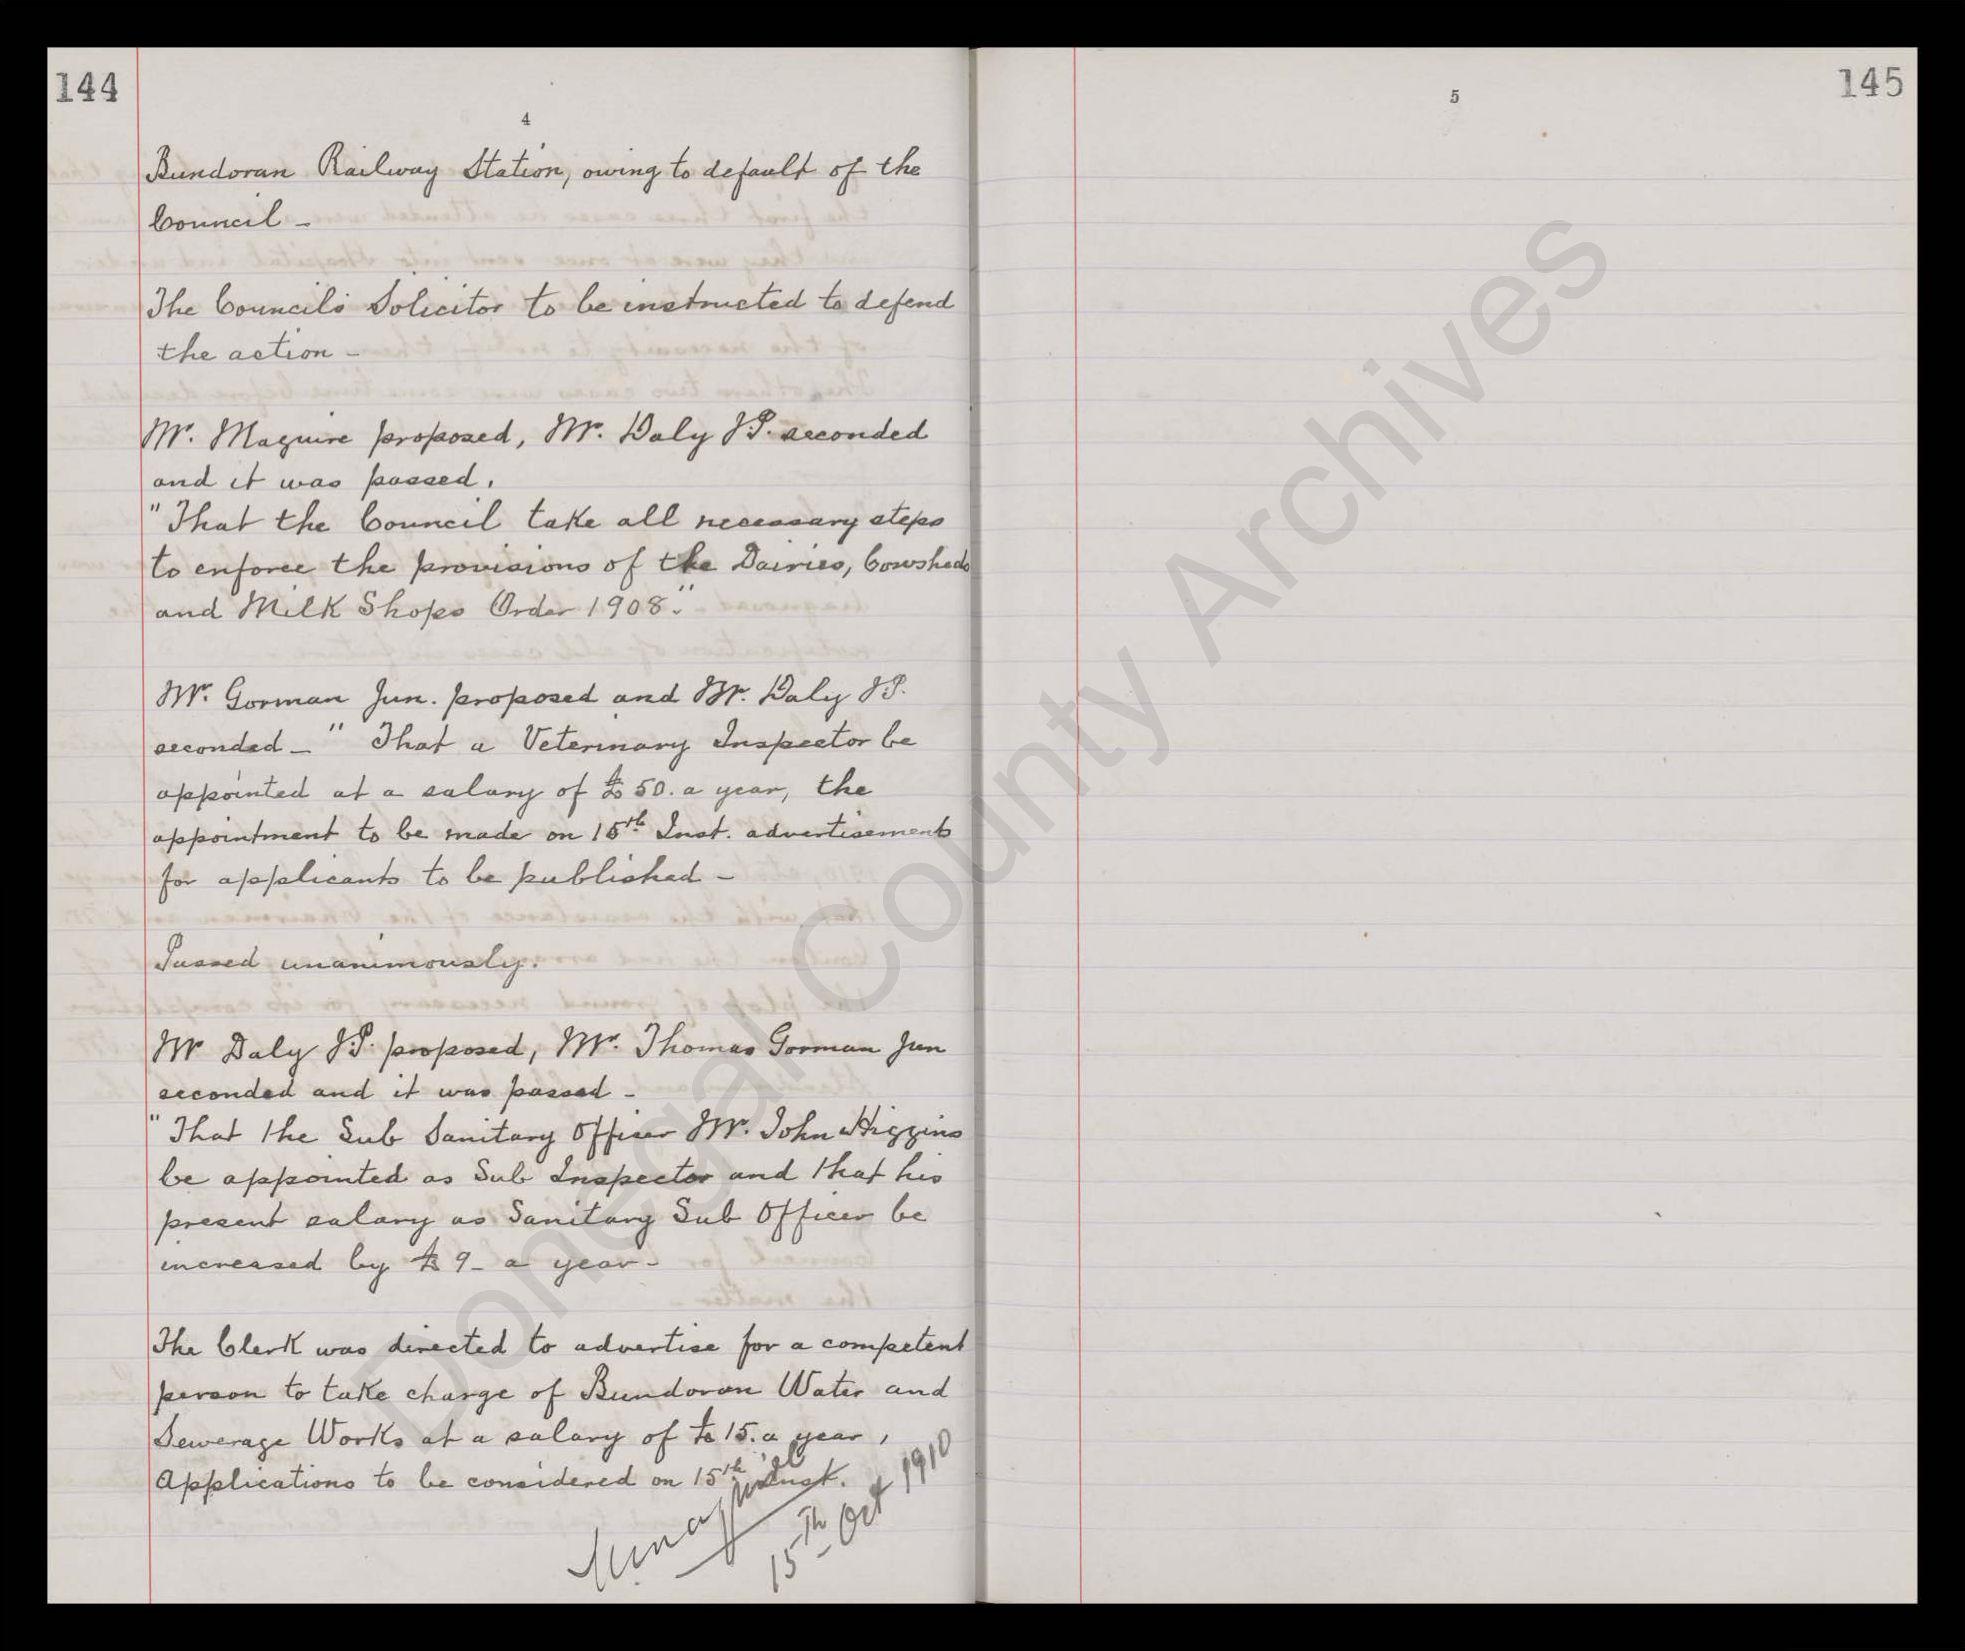 144
4
Bundoran Railway Station, owing to default of the
Council -
The Council's Solicitor to be instructed to defend
the action -
Mr. Maguire proposed, Mr. Daly J.P. seconded
and it was passed.
"That the Council take all necessary steps
to enforce the provisions of the Dairies, Cowsheds
and Milk Shops Order 1908."
Mr. Gorman Jun. proposed and Mr. Daly J.P.
seconded - "That a Veterinary Inspector be
appointed at a salary of £50. a year, the
appointment to be made on 15th Inst. advertisements
for applicants to be published -
Passed unanimously.
Mr Daly J.P. proposed, Mr. Thomas Gorman Jun
seconded and it was passed -
"That the Sub Sanitary Officer Mr. John Higgins
be appointed as Sub Inspector and that his
present salary as Sanitary Sub Officer be
increased by £9 - a year -
The Clerk was directed to advertise for a competent
person to take charge of Bundoran Water and
Sewerage Works at a salary of £15. a year,
Applications to be considered on 15th Inst.
15th Oct 1910
5
145
Donegal County Archives